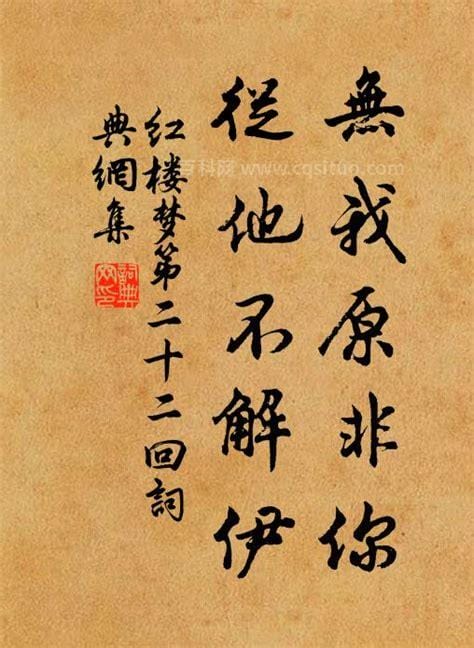 無我原非你
從他不解伊
红楼梦第二十二回詞
典網集
詞典網印
百科网 www.cqsituo.com